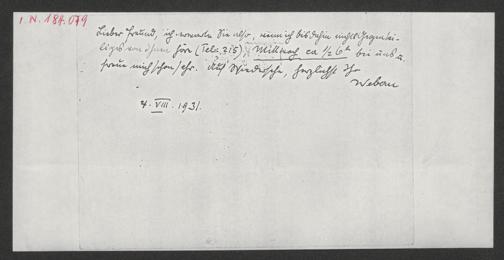 I. N. 184.079
Lieber Freund, ich erwarte Sie also, wenn ich bis dahin nichts Gegentei-
liges von Ihnen höre (Tel. 315), Mittwoch ca ½ 6h bei uns u.
freue mich schon sehr. Auf Wiedersehn, herzlichst Ihr
Webern
4. VIII. 1931.